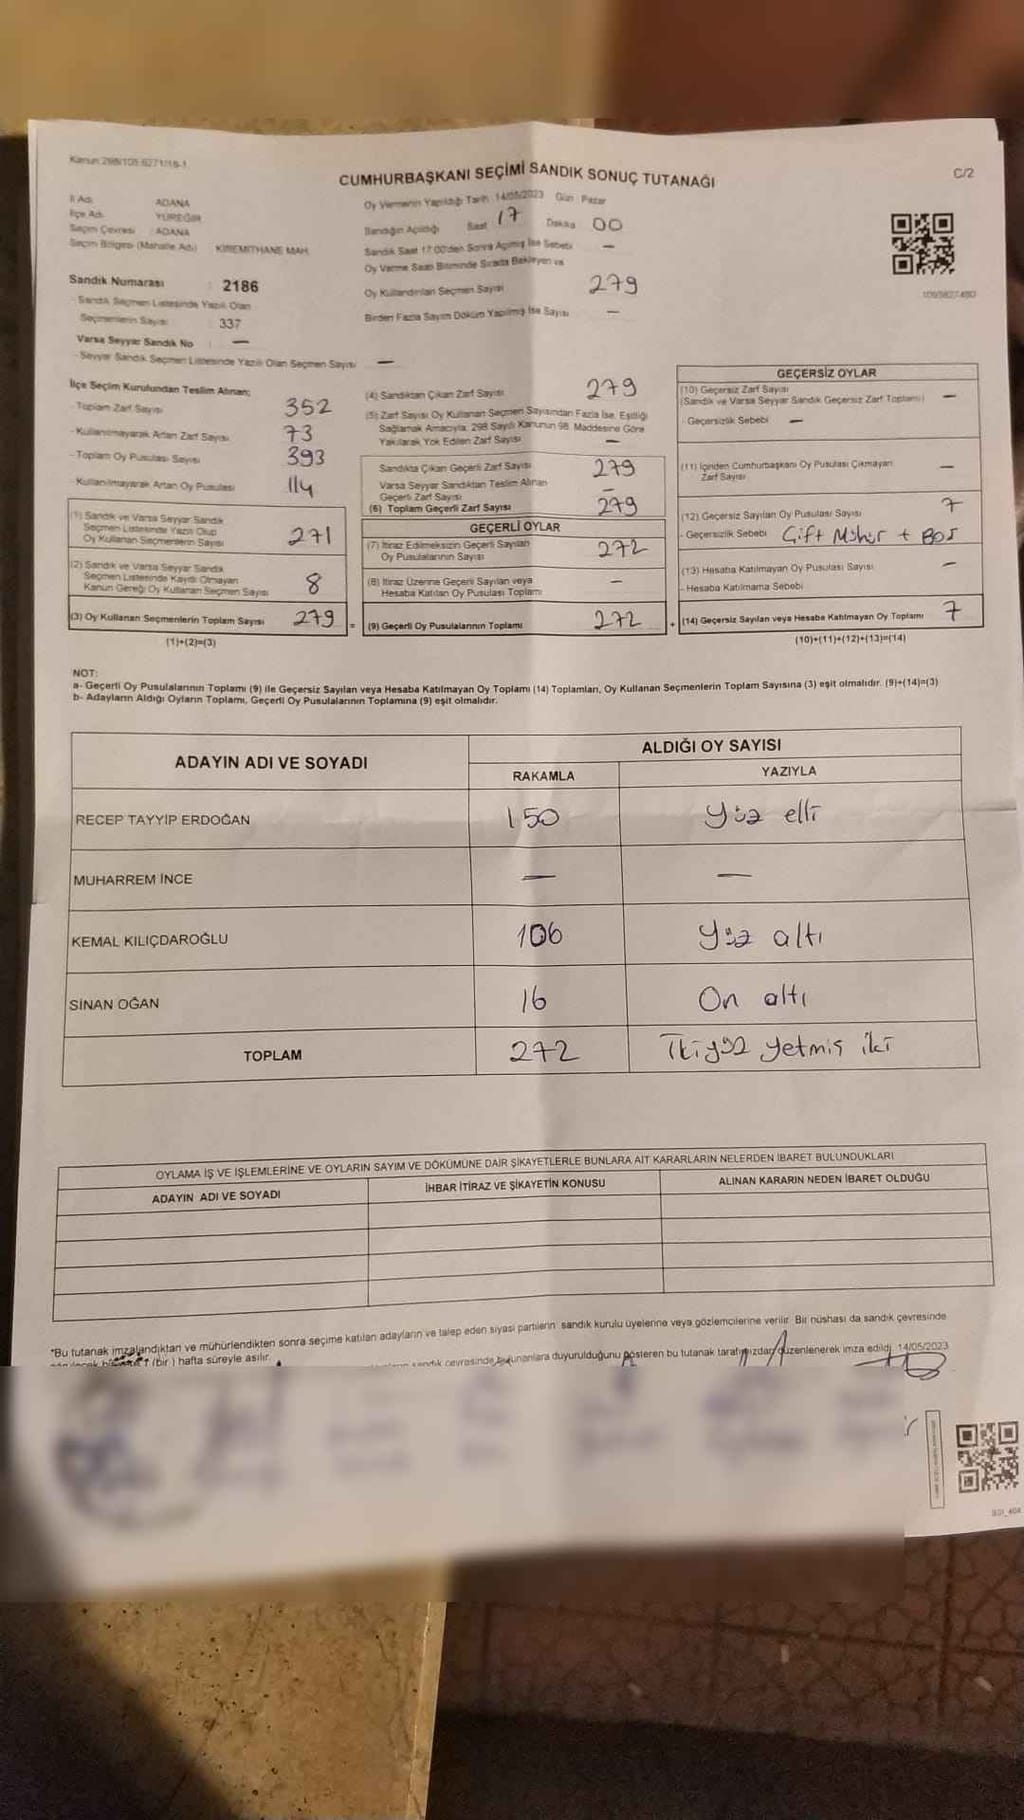 Kanun: 298/105 6271/18-1
CUMHURBAŞKANI SEÇİMİ SANDIK SONUÇ TUTANAĞI
C/2
İl Adı ADANA
İlçe Adı YÜREĞİR
Seçim Çevresi ADANA
Seçim Bölgesi (Mahalle Adı) KİREMİTHANE MAH.
Oy Vermenin Yapıldığı Tarih 14/05/2023 Gün Pazar
Sandığın Açıldığı Saat 17 Dakika 00
Sandık Saat 17:00'den Sonra Açılmış İse Sebebi —
Oy Verme Saati Bitiminde Sırada Bekleyen ve
Oy Kullandırılan Seçmen Sayısı 279
Birden Fazla Sayım Döküm Yapılmış İse Sayısı —
Sandık Numarası : 2186
- Sandık Seçmen Listesinde Yazılı Olan
Seçmenlerin Sayısı : 337
Varsa Seyyar Sandık No —
- Seyyar Sandık Seçmen Listesinde Yazılı Olan Seçmen Sayısı —
İlçe Seçim Kurulundan Teslim Alınan;
- Toplam Zarf Sayısı 352
- Kullanılmayarak Artan Zarf Sayısı 73
- Toplam Oy Pusulası Sayısı 393
- Kullanılmayarak Artan Oy Pusulası 114
(1) Sandık ve Varsa Seyyar Sandık
Seçmen Listesinde Yazılı Olup
Oy Kullanan Seçmenlerin Sayısı 271
(2) Sandık ve Varsa Seyyar Sandık
Seçmen Listesinde Kayıtlı Olmayan
Kanun Gereği Oy Kullanan Seçmen Sayısı 8
(3) Oy Kullanan Seçmenlerin Toplam Sayısı 279 =
(1)+(2)=(3)
(4) Sandıktan Çıkan Zarf Sayısı 279
(5) Zarf Sayısı Oy Kullanan Seçmen Sayısından Fazla İse, Eşitliği
Sağlamak Amacıyla, 298 Sayılı Kanunun 98. Maddesine Göre
Yakılarak Yok Edilen Zarf Sayısı —
Sandıkta Çıkan Geçerli Zarf Sayısı 279
Varsa Seyyar Sandıktan Teslim Alınan
Geçerli Zarf Sayısı —
(6) Toplam Geçerli Zarf Sayısı 279
GEÇERLİ OYLAR
(7) İtiraz Edilmeksizin Geçerli Sayılan
Oy Pusulalarının Sayısı 272
(8) İtiraz Üzerine Geçerli Sayılan veya
Hesaba Katılan Oy Pusulası Toplamı —
(9) Geçerli Oy Pusulalarının Toplamı 272 +
GEÇERSİZ OYLAR
(10) Geçersiz Zarf Sayısı
(Sandık ve Varsa Seyyar Sandık Geçersiz Zarf Toplamı) —
- Geçersizlik Sebebi —
(11) İçinden Cumhurbaşkanı Oy Pusulası Çıkmayan
Zarf Sayısı —
(12) Geçersiz Sayılan Oy Pusulası Sayısı 7
- Geçersizlik Sebebi Çift Mühür + Boş
(13) Hesaba Katılmayan Oy Pusulası Sayısı —
- Hesaba Katılmama Sebebi
(14) Geçersiz Sayılan veya Hesaba Katılmayan Oy Toplamı 7
(10)+(11)+(12)+(13)=(14)
NOT:
a- Geçerli Oy Pusulalarının Toplamı (9) ile Geçersiz Sayılan veya Hesaba Katılmayan Oy Toplamı (14) Toplamları, Oy Kullanan Seçmenlerin Toplam Sayısına (3) eşit olmalıdır. (9)+(14)=(3)
b- Adayların Aldığı Oyların Toplamı, Geçerli Oy Pusulalarının Toplamına (9) eşit olmalıdır.
ADAYIN ADI VE SOYADI ALDIĞI OY SAYISI
RAKAMLA YAZIYLA
RECEP TAYYİP ERDOĞAN 150 Yüz elli
MUHARREM İNCE — —
KEMAL KILIÇDAROĞLU 106 Yüz altı
SİNAN OĞAN 16 On altı
TOPLAM 272 İkiyüz yetmiş iki
OYLAMA İŞ VE İŞLEMLERİNE VE OYLARIN SAYIM VE DÖKÜMÜNE DAİR ŞİKAYETLERLE BUNLARA AİT KARARLARIN NELERDEN İBARET BULUNDUKLARI
ADAYIN ADI VE SOYADI İHBAR İTİRAZ VE ŞİKAYETİN KONUSU ALINAN KARARIN NEDEN İBARET OLDUĞU
*Bu tutanak imzalandıktan ve mühürlendikten sonra seçime katılan adayların ve talep eden siyasi partilerin sandık kurulu üyelerine veya gözlemcilerine verilir. Bir nüshası da sandık çevresinde
(bir) hafta süreyle asılır. sandık çevresinde bulunanlara duyurulduğunu gösteren bu tutanak tarafımızdan düzenlenerek imza edildi. 14/05/2023